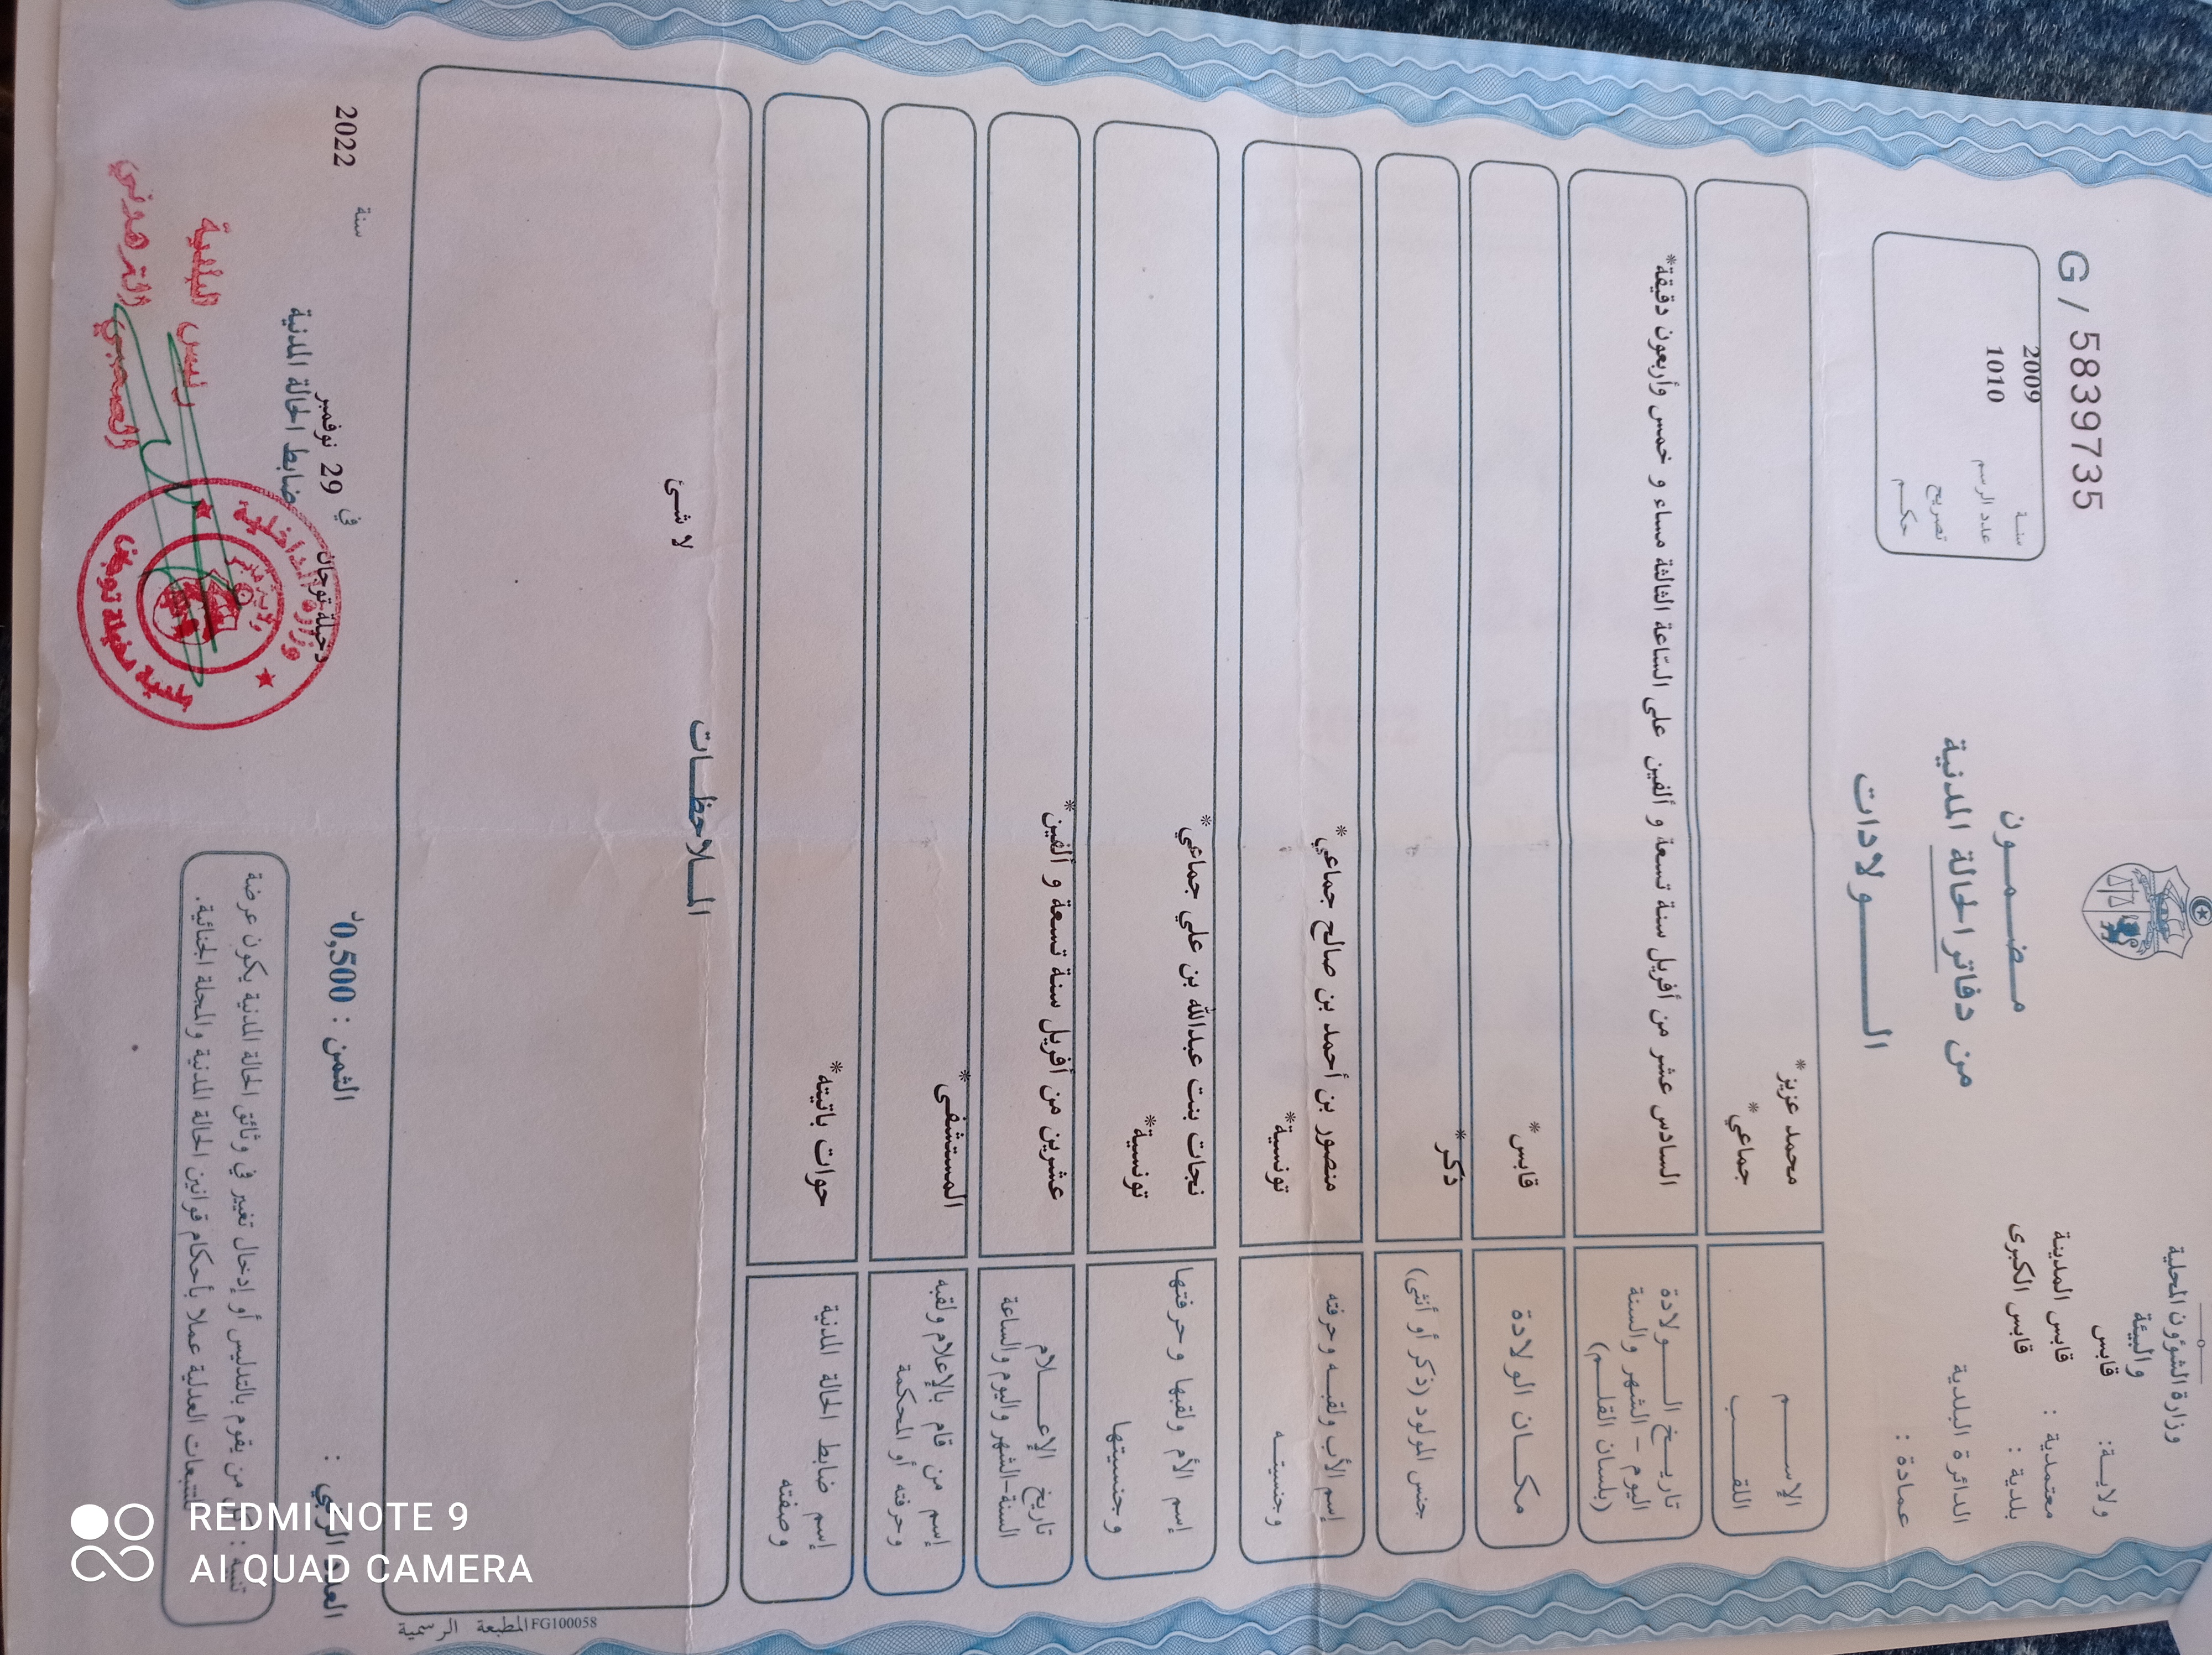 وزارة الشؤون المحلية
والبيئة
ولاية: قابس
معتمدية : قابس المدينة
بلدية : قابس الكبرى
الدائرة البلدية
عمادة :
G / 5839735
سنة 2009
عدد الرسم 1010
تصريح
حكم
مضمون
من دفاتر الحالة المدنية
الولادات
الإسم محمد عزيز*
اللقب جماعي*
تاريخ الولادة
اليوم - الشهر والسنة
(بلسان القلم)
السادس عشر من أفريل سنة تسعة و ألفين على الساعة الثالثة مساء و خمس وأربعون دقيقة*
مكان الولادة قابس*
جنس المولود (ذكر أو أنثى) ذكر*
إسم الأب ولقبه وحرفته منصور بن أحمد بن صالح جماعي*
وجنسيته تونسية*
إسم الأم ولقبها وحرفتها نجات بنت عبدالله بن علي جماعي*
وجنسيتها تونسية*
تاريخ الإعلام
السنة-الشهر واليوم والساعة
عشرين من أفريل سنة تسعة و ألفين*
إسم من قام بالإعلام ولقبه
وحرفته أو المحكمة
المستشفى*
إسم ضابط الحالة المدنية
وصفته
حوات باتيته*
الملاحظات
لا شئ
المطبعة الرسمية FG100058
العدد الرتبي :
الثمن : 0,500د
دخيلة توجان في 29 نوفمبر سنة 2022
ضابط الحالة المدنية
رئيس البلدية
وزارة الداخلية
تنبيه : كل من يقوم بالتدليس أو إدخال تغيير في وثائق الحالة المدنية يكون عرضة
للتتبعات العدلية عملا بأحكام قوانين الحالة المدنية والمجلة الجنائية.
REDMI NOTE 9
AI QUAD CAMERA